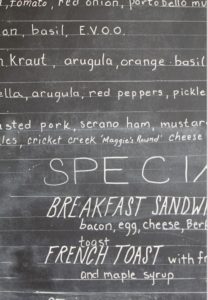 tomato, red onion, portobello mu
an, basil, E.V.O.O.
n. Kraut, arugula, orange-basil
ella, arugula, red peppers, pickle
asted pork, serano ham, mustar
les, cricket creek 'Maggie's Round' cheese
SPECIA
BREAKFAST SANDWI
bacon, egg, cheese, Ber
toast
FRENCH TOAST with fr
and maple syrup